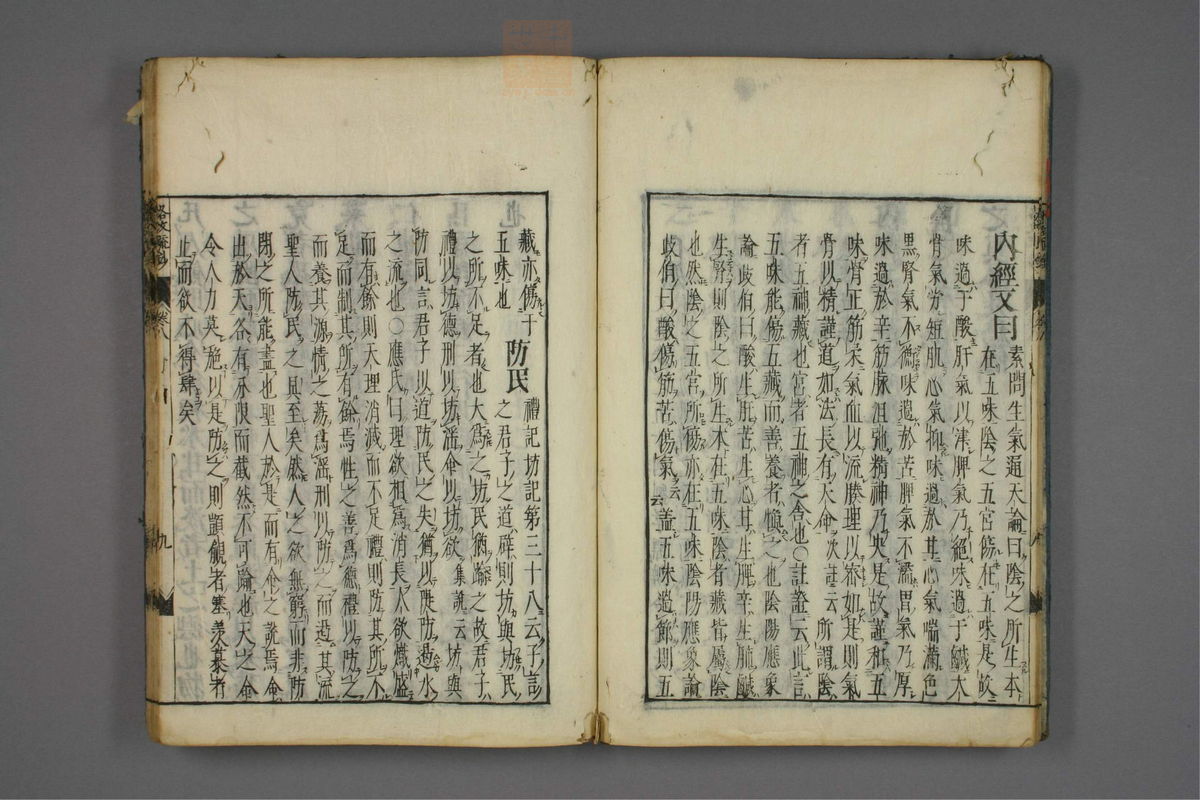 內經又曰素問生氣通天論曰陰之所生本
在五味陰之五宮傷在五味是故
味過于酸肝氣以津脾氣乃絕味過于鹹大
骨氣勞短肌心氣抑味過於甘心氣喘滿色
黑腎氣不衡味過於苦脾氣不濡胃氣乃厚
味過於辛筋脉沮弛精神乃央是故謹和五
味骨正筋柔氣血以流腠理以密如是則氣
骨以精謹道如法長有天命次註云所謂陰
者五神藏也宮者五神之舍也〇註證云此言
五味能傷五藏而善養者慎之也陰陽應象
論歧伯曰酸生肝苦生心甘生脾辛生肺鹹
生腎則陰之所生本在五味陰者藏皆屬陰
也然陰之五宮所傷亦在五味陰陽應象論
歧伯曰酸傷筋苦傷氣云云蓋五味過節則五
藏亦傷于
五味也
防民禮記坊記第三十八云子言
之君子之道辟則坊與坊民
之所不足者也大爲之坊民猶踰之故君子
禮以坊德刑以坊淫命以坊欲集說云坊與
防同言君子以道防民之失猶以隄防遏水
之流也〇應氏曰理欲相爲消長人欲熾盛
而有餘則天理消滅而不足禮則防其所不
足而制其所有餘焉性之善爲德禮以防之
而養其源情之蕩爲淫刑以防之而遏其流
聖人防民之具至矣然人之欲無窮而非防
閑之所能盡也聖人於是而有命之說焉命
出於天各有分限而截然不可踰也天之命
令人力莫施以是防之則覬覦者塞羨慕者
止而欲不得肆矣
卷八
九